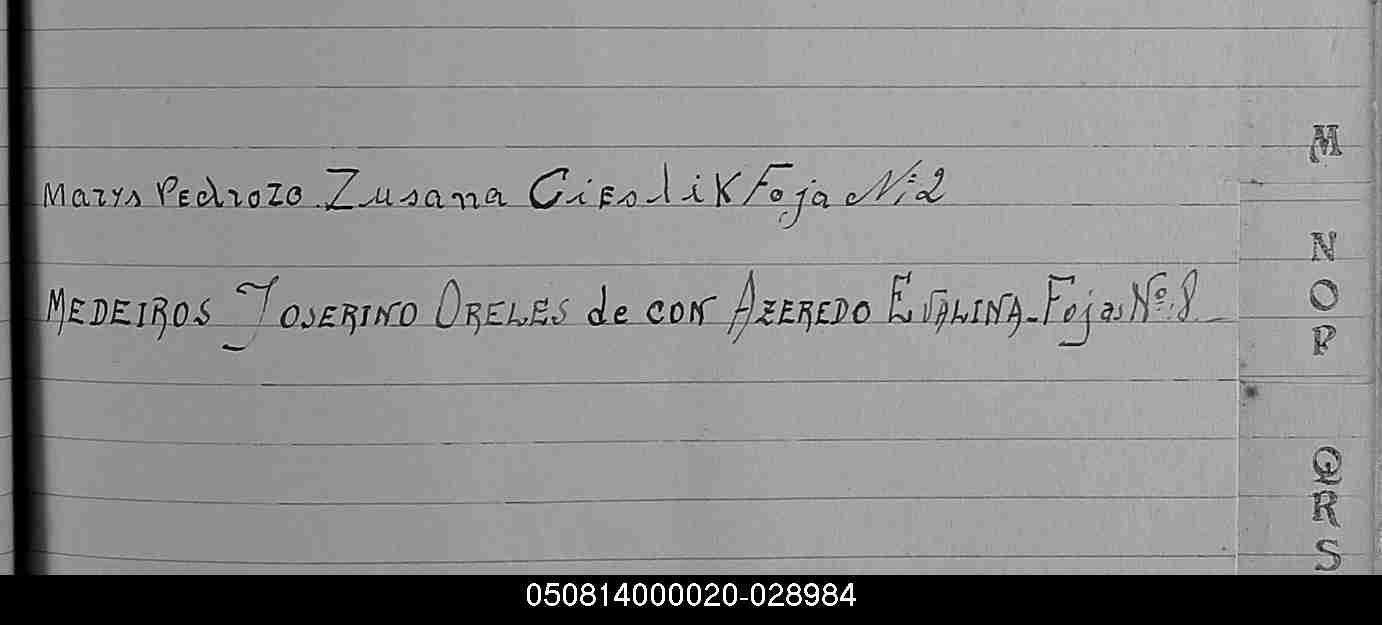 Marys Pedrozo Zusana Cieslik Foja Nº 2
MEDEIROS JOSERINO ORELES de CON AZEREDO EVALINA - Fojas Nº 8
M
N
O
P
Q
R
S
050814000020-028984